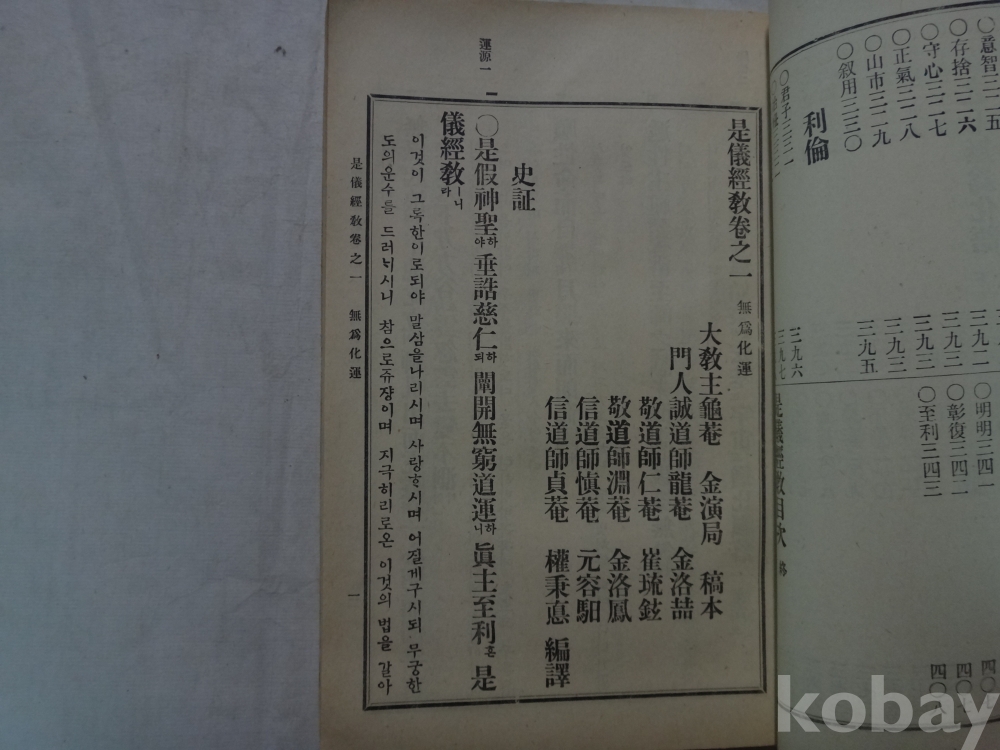 ○意智三二五
○存捨三二六
○守心三二七
○正氣三二八
○山市三二九
○叙用三三○
利倫
○君子三三一
三九二
三九三
三九三
三九三
三九五
三九六
三九七
○明明三四一
○彰復三四二
○至利二四三
是儀經敎目次
是儀經敎卷之一 無爲化運
大敎主龜菴 金演局 稿本
門人誠道師龍菴 金洛喆
敬道師仁菴 崔琉鉉
敬道師淵菴 金洛鳳
信道師愼菴 元容馹
信道師貞菴 權秉悳 編譯
史証
○是假神聖하야垂誥慈仁하되闡開無窮道運하니眞主至利혼是
儀經敎ㅣ니라
이것이 그룩한이로되야 말삼을나리시며 사랑하시며 어질게구시되 무궁한
도의운수를 드러뇌시니 참으로쥬쟝이며 지극히리로온 이것의 법을 갈아
運源一
是儀經敎卷之一 無爲化運 一
kobay